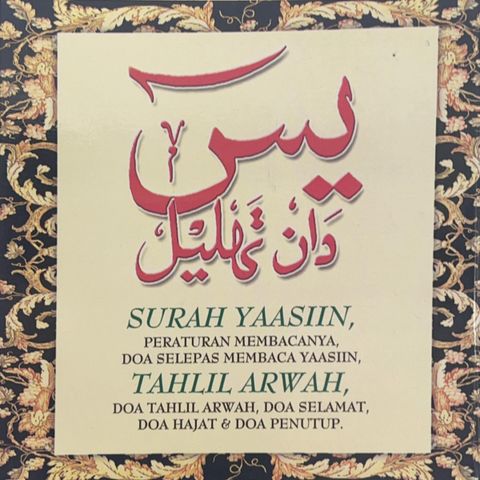 يس
دان تهليل
SURAH YAASIIN,
PERATURAN MEMBACANYA,
DOA SELEPAS MEMBACA YAASIIN,
TAHLIL ARWAH,
DOA TAHLIL ARWAH, DOA SELAMAT,
DOA HAJAT & DOA PENUTUP.